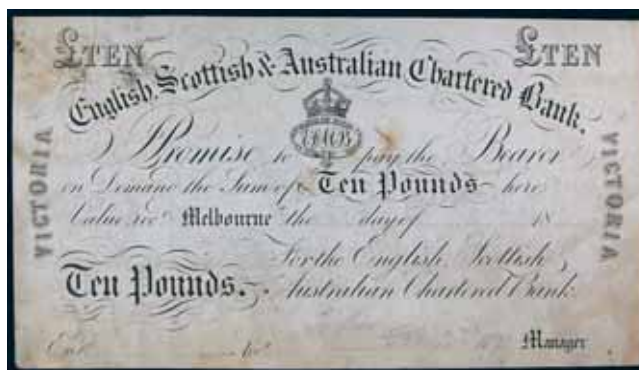 £TEN £TEN
English, Scottish & Australian Chartered Bank.
VICTORIA
VICTORIA
I Promise to pay the Bearer
on Demand the Sum of Ten Pounds here
Value recd Melbourne the day of 18
For the English, Scottish &
Ten Pounds. Australian Chartered Bank.
Entd No. Manager